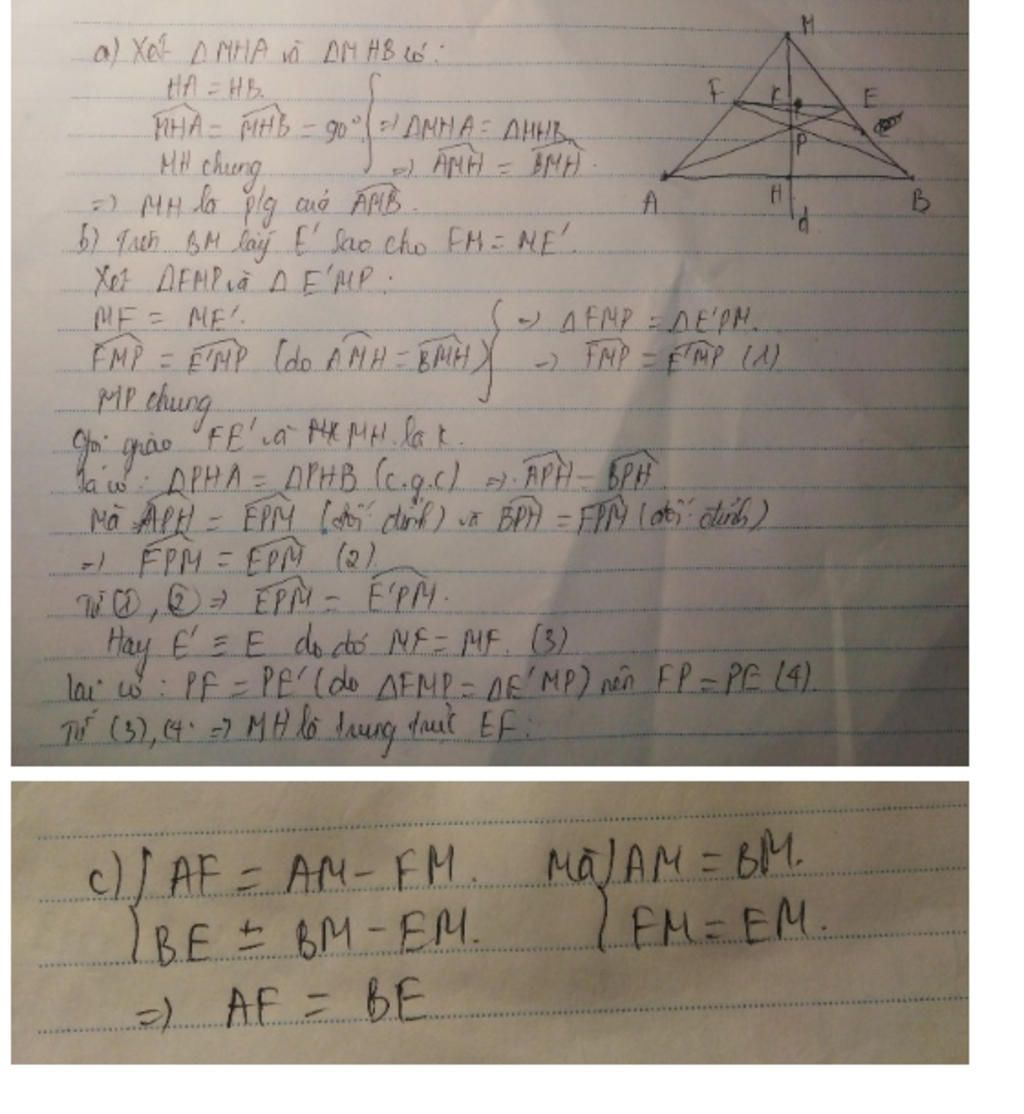 a) Xét ΔMHA và ΔMHB có:
HA = HB.
MHA = MHB = 90° => ΔMHA = ΔMHB
MH chung => AMH = BMH.
=> MH là p/g của AMB.
b) Trên BM lấy E' sao cho FM = ME'.
Xét ΔFMP và ΔE'MP:
MF = ME'. => ΔFMP = ΔE'PM.
FMP = E'MP (do AMH = BMH) => FMP = E'MP (1)
MP chung
Gọi giao FE' và MH là K.
Ta có: ΔPHA = ΔPHB (c.g.c) => APH = BPH
Mà APH = EPM (đối đỉnh) và BPH = FPM (đối đỉnh)
=> FPM = EPM (2)
Từ ①, ② => EPM = E'PM.
Hay E' ≡ E do đó MF = MF. (3)
lại có: PF = PE' (do ΔFMP = ΔE'MP) nên FP = PE (4).
Từ (3), (4 => MH là trung trực EF.
M
F K E
P
A H B
d
c) { AF = AM - FM. Mà { AM = BM.
BE = BM - EM. FM = EM.
=> AF = BE